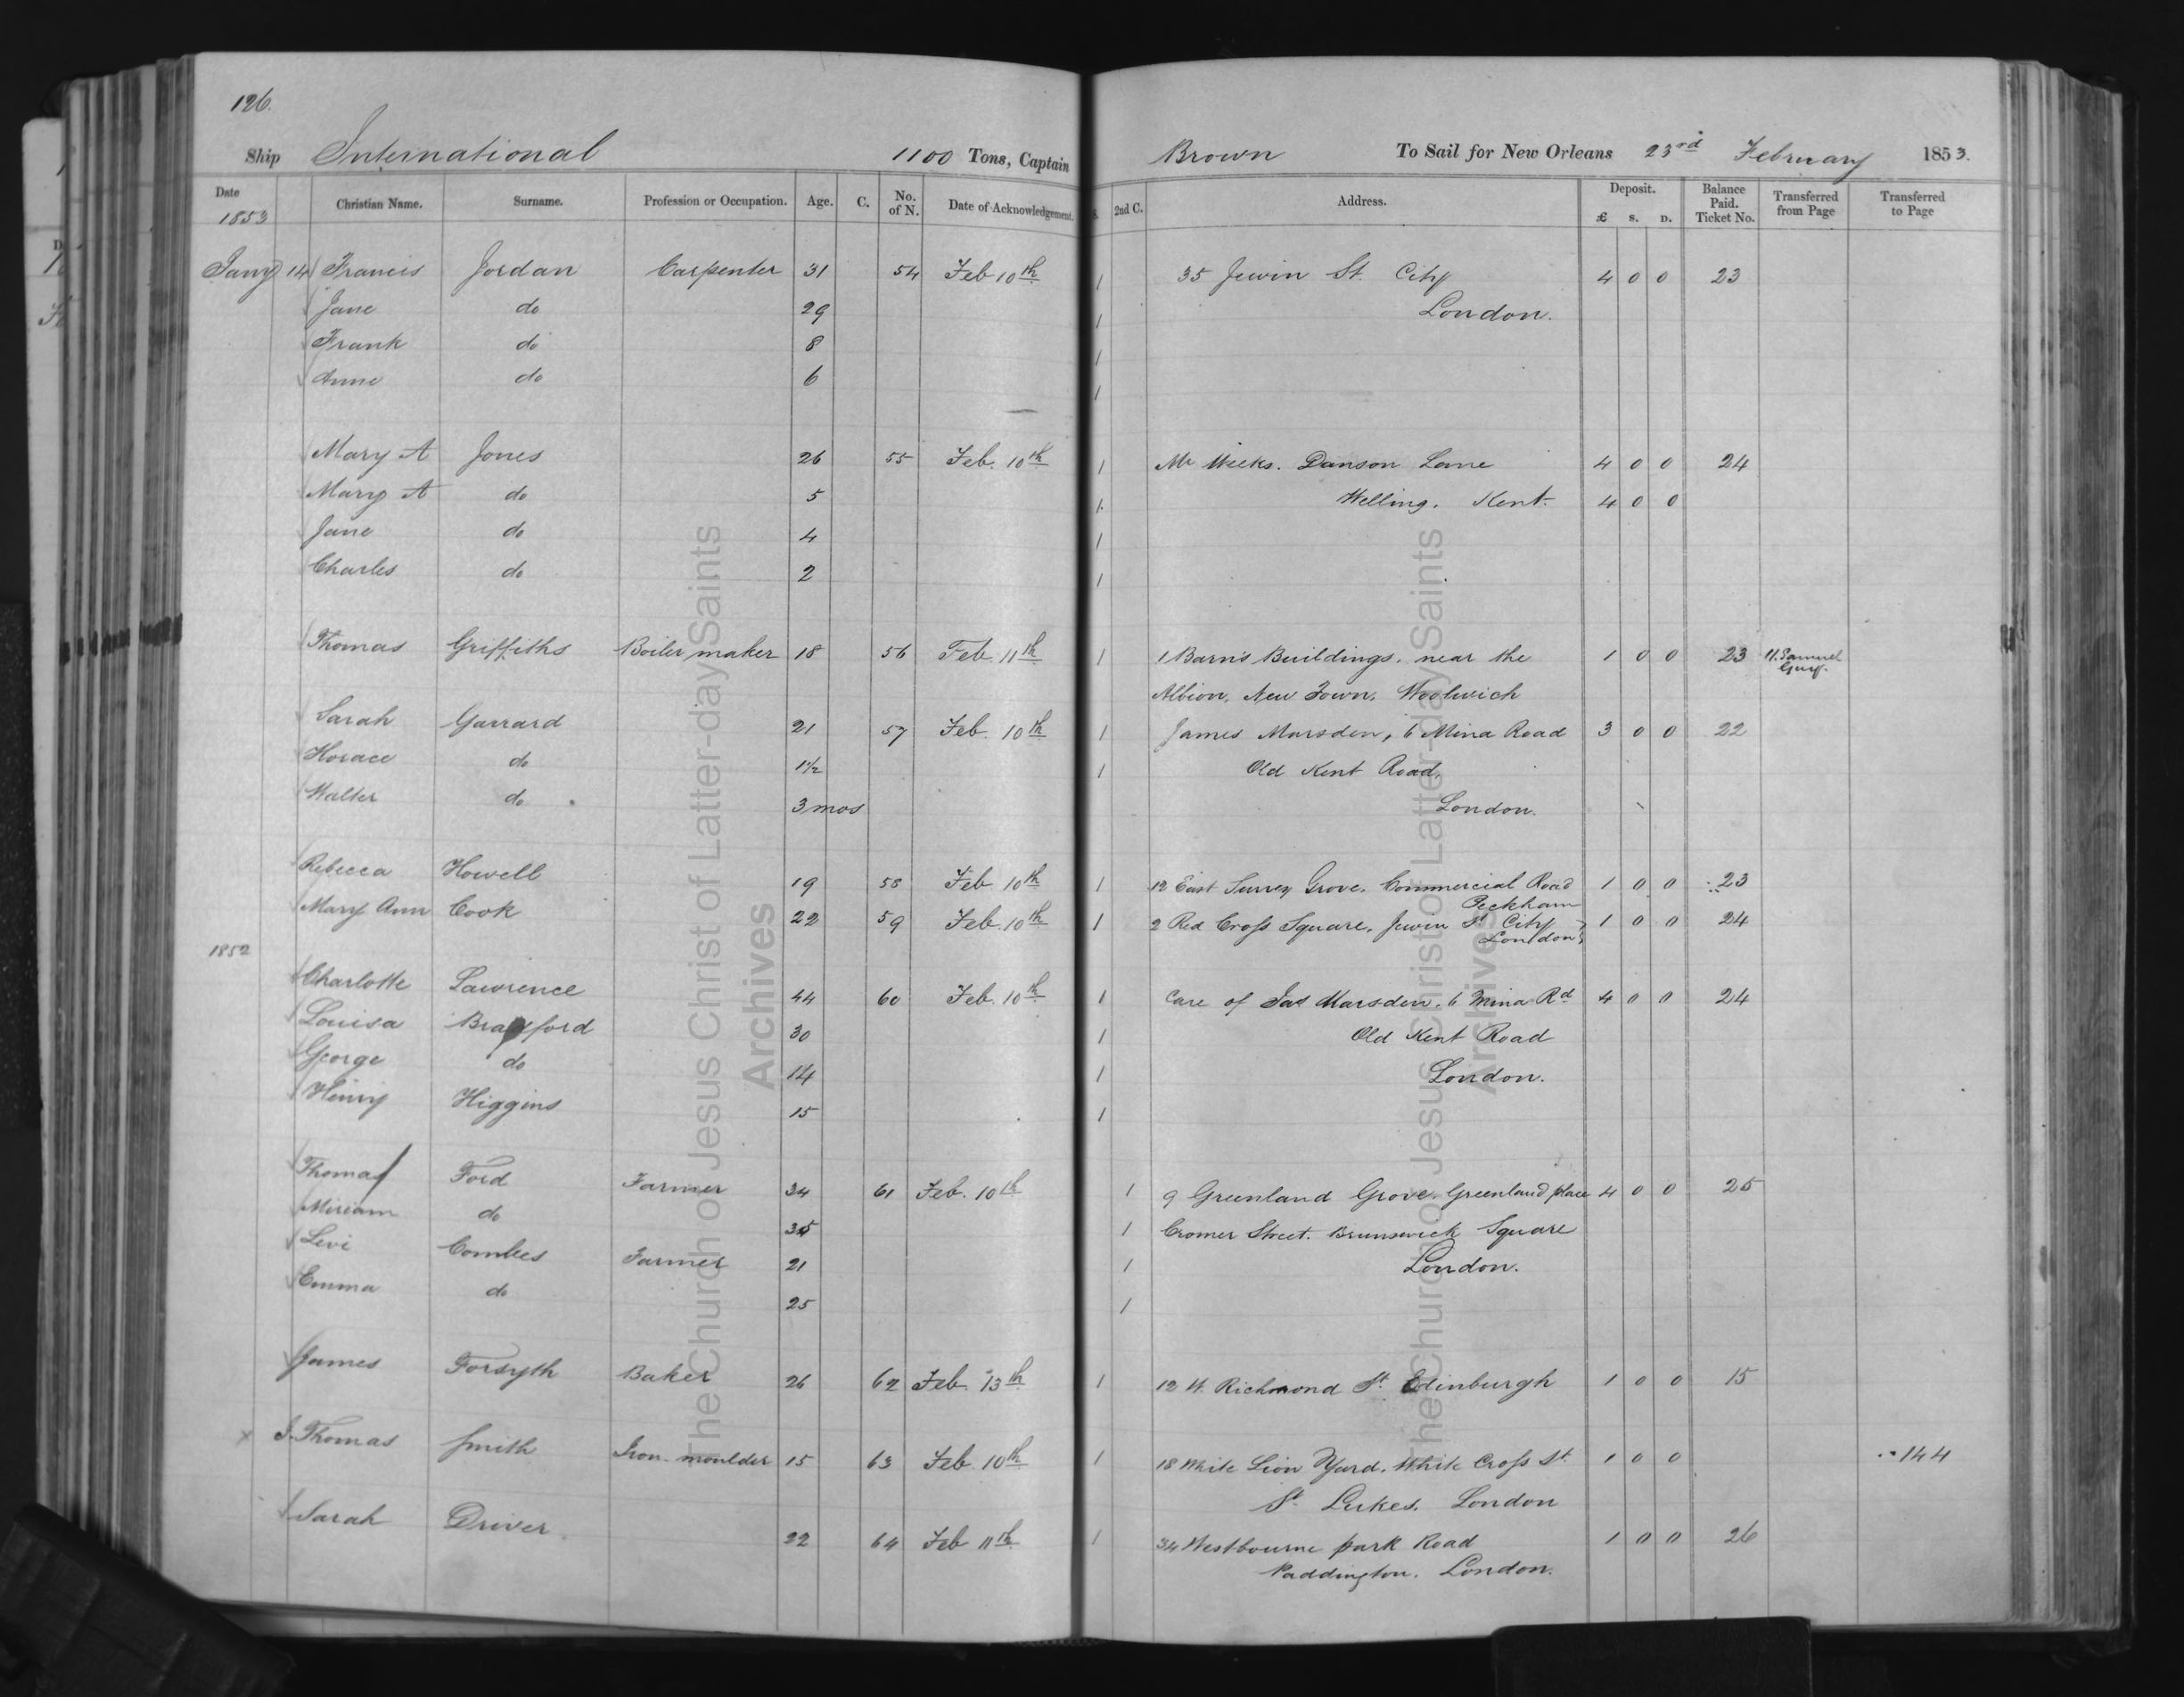 126.
Ship International 1100 Tons, Captain Brown To Sail for New Orleans 23rd February 1853.
Date 1853 Christian Name. Surname. Profession or Occupation. Age. C. No. of N. Date of Acknowledgement. S. 2nd C. Address. Deposit. £ s. D. Balance Paid. Ticket No. Transferred from Page Transferred to Page
Jany 14 Francis Jordan Carpenter 31 54 Feb 10th 1 35 Jewin St. City 4 0 0 23
Jane do 29 1 London.
Frank do 8 1
Anne do 6 1
Mary A Jones 26 55 Feb. 10th 1 Mr Weeks. Danson Lane 4 0 0 24
Mary A do 5 1 Welling. Kent. 4 0 0
Jane do 4 1
Charles do 2 1
Thomas Griffiths Boiler maker 18 56 Feb 11th 1 1 Barn's Buildings. near the 1 0 0 23 Samuel
Albion, New Town, Woolwich
Sarah Garrard 21 57 Feb. 10th 1 James Marsden, 6 Mina Road 3 0 0 22
Horace do 1½ 1 Old Kent Road,
Walter do 3 mos London.
Rebecca Howell 19 58 Feb 10th 1 12 East Surrey Grove. Commercial Road 1 0 0 23
Peckham
Mary Ann Cook 22 59 Feb. 10th 1 2 Red Cross Square, Jewin St City 1 0 0 24
London
1852
Charlotte Lawrence 44 60 Feb. 10th 1 Care of Jas Marsden. 6 Mina Rd 4 0 0 24
Louisa 30 1 Old Kent Road
George do 14 1 London.
Henry Higgins 15 1
Thomas Ford Farmer 34 61 Feb. 10th 1 9 Greenland Grove. Greenland place 4 0 0 25
Miriam do 1 Cromer Street. Brunswick Square
Levi Combes Farmer 21 1 London.
Emma do 25 1
James Forsyth Baker 26 62 Feb. 13th 1 12 W. Richmond St Edinburgh 1 0 0 15
x J. Thomas Smith Iron moulder 15 63 Feb. 10th 1 18 White Lion Yard. White Cross St 1 0 0 144
St Lukes. London
Sarah Driver 22 64 Feb 11th 1 34 Westbourne park Road 1 0 0 26
Paddington. London.
The Church of Jesus Christ of Latter-day Saints
Archives
The Church of Jesus Christ of Latter-day Saints
Archives